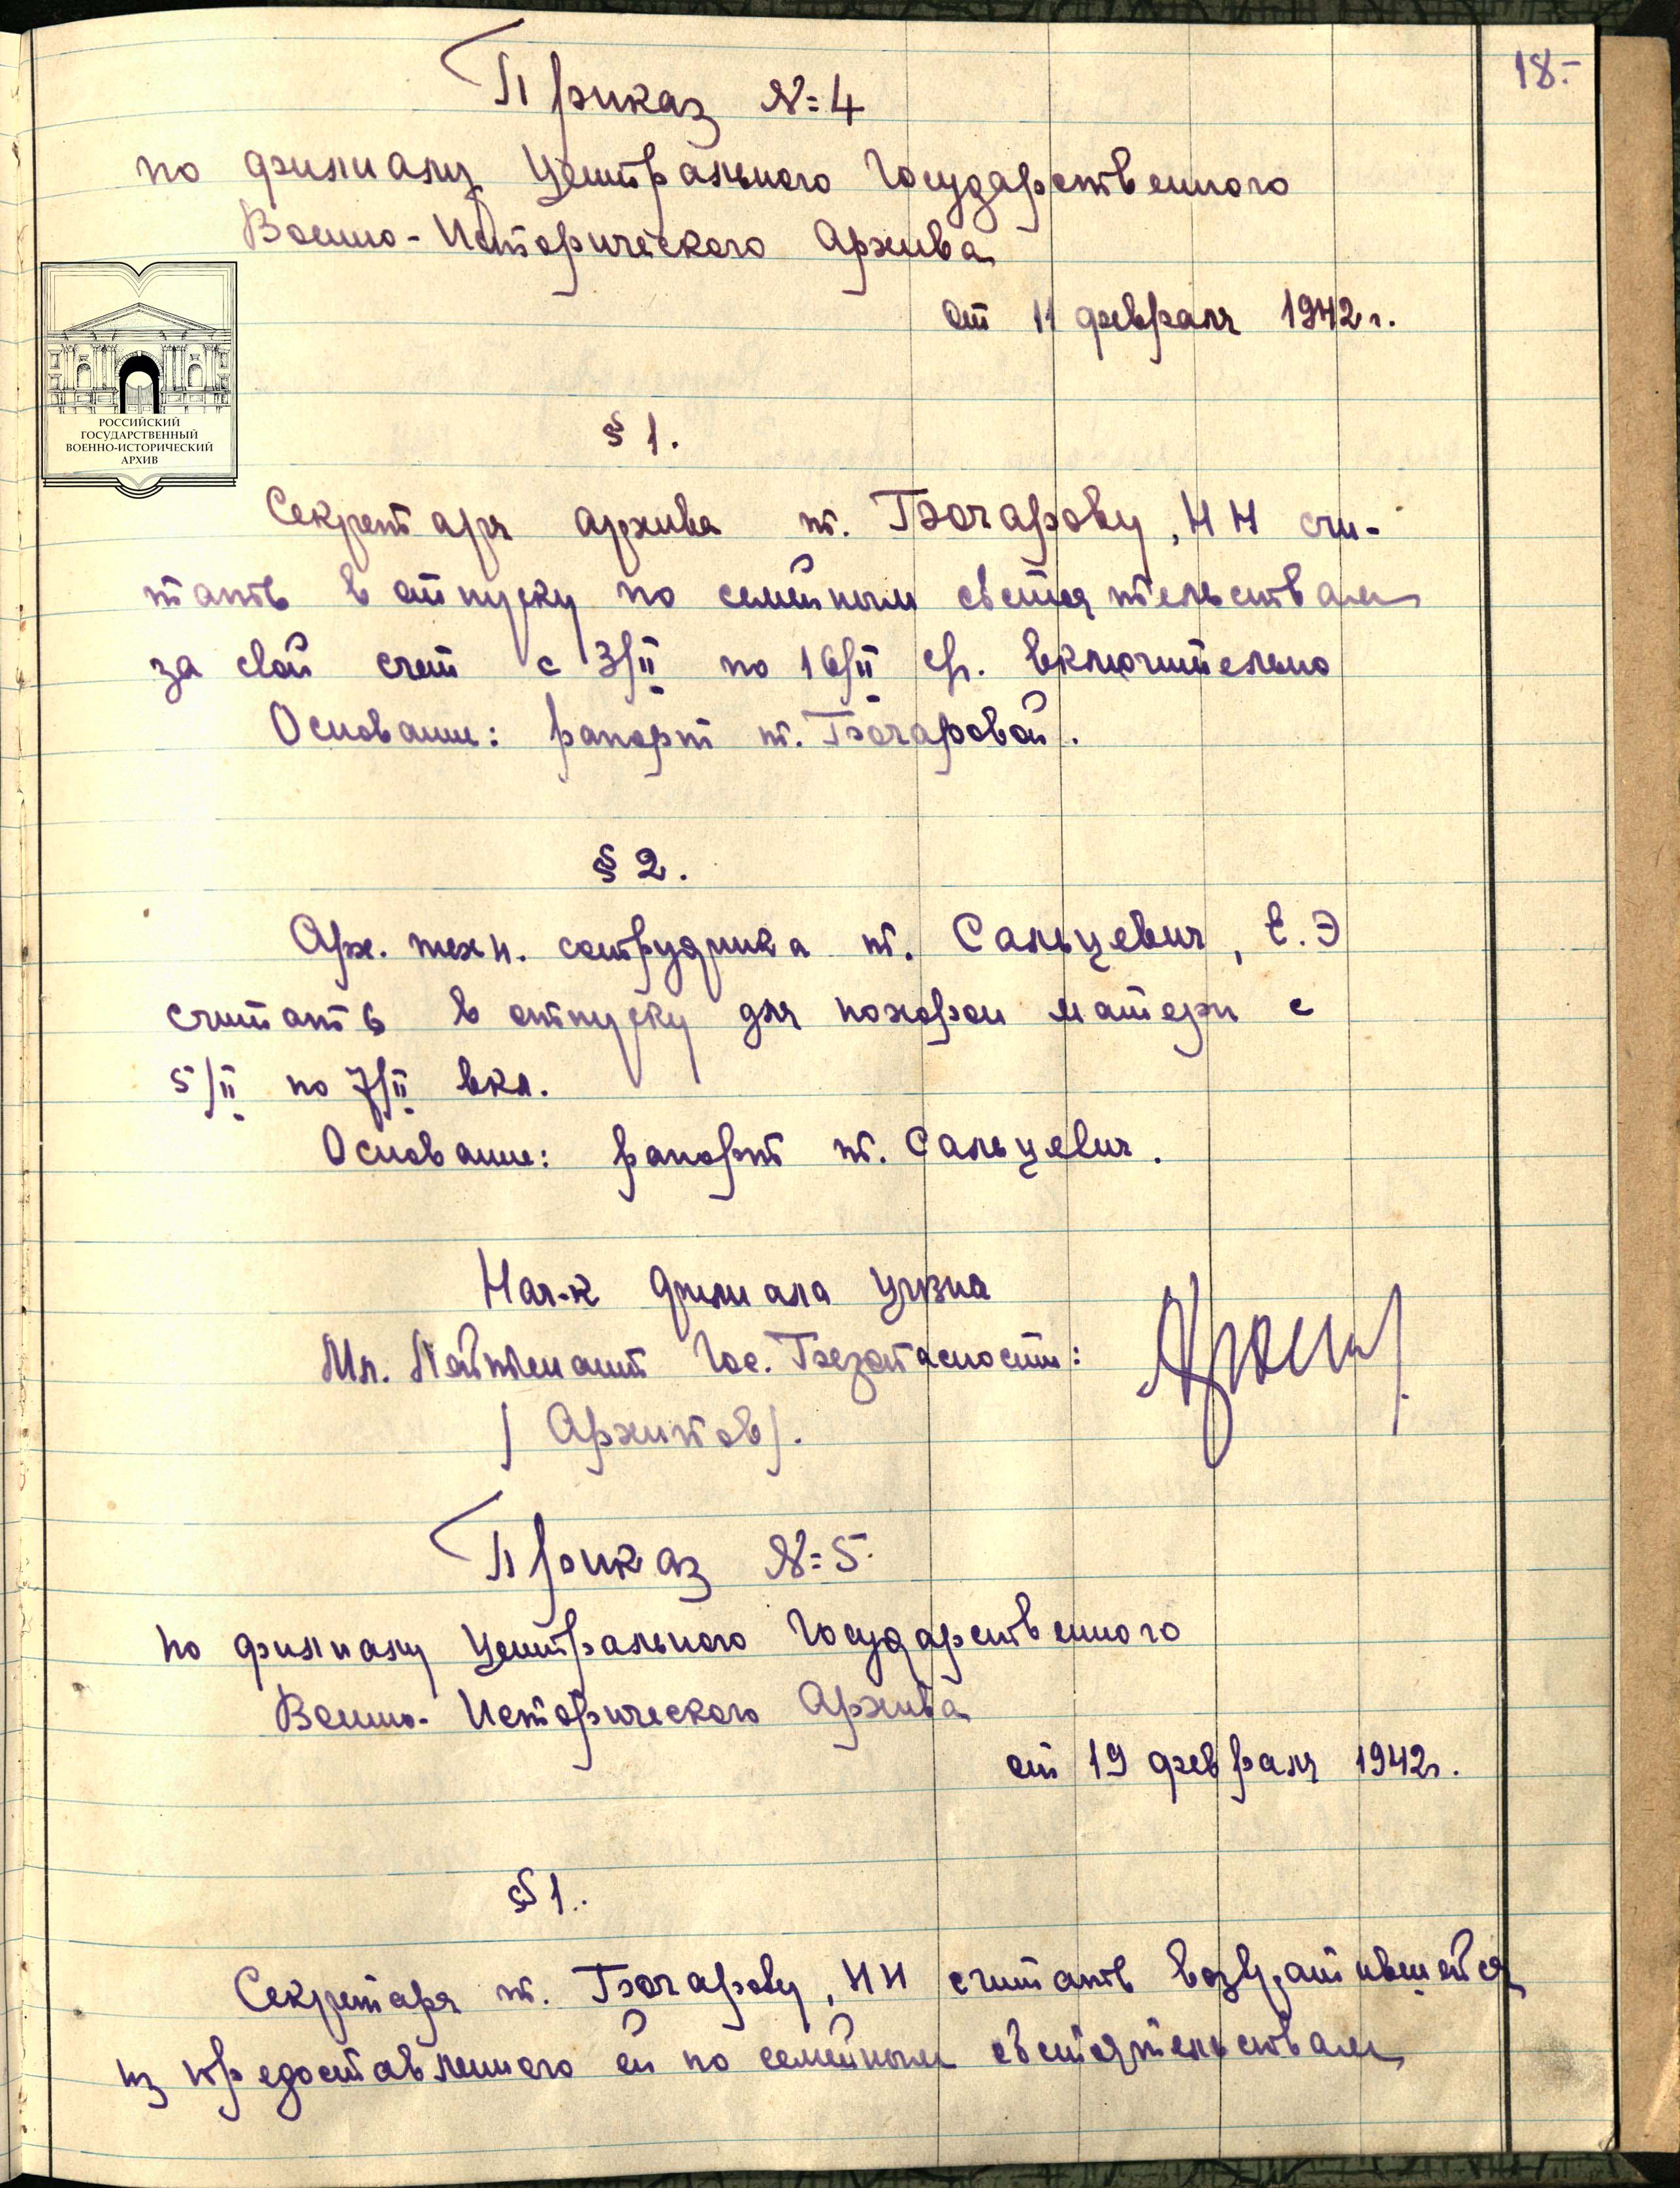 18.-
Приказ №=4
по филиалу Центрального Государственного
Военно-Исторического Архива
от 11 февраля 1942г.
РОССИЙСКИЙ
ГОСУДАРСТВЕННЫЙ
ВОЕННО-ИСТОРИЧЕСКИЙ
АРХИВ
§ 1.
Секретаря архива т. Бочарову, НН счи-
тать в отпуску по семейным обстоятельствам
за свой счет с 3/II по 16/II с/г. включительно
Основание: рапорт т. Бочаровой.
§ 2.
Арх. техн. сотрудника т. Сальцевич, Е.Э
считать в отпуску для похорон матери с
5/II по 7/II вкл.
Основание: рапорт т. Сальцевич.
Нач-к филиала ЦГВИА
Мл. Лейтенант Гос. Безопасности:
/ Архипов/.
Приказ №=5
по филиалу Центрального Государственного
Военно-Исторического Архива
от 19 февраля 1942г.
§ 1.
Секретаря т. Бочарову, НН считать возвратившейся
из предоставленного ей по семейным обстоятельствам